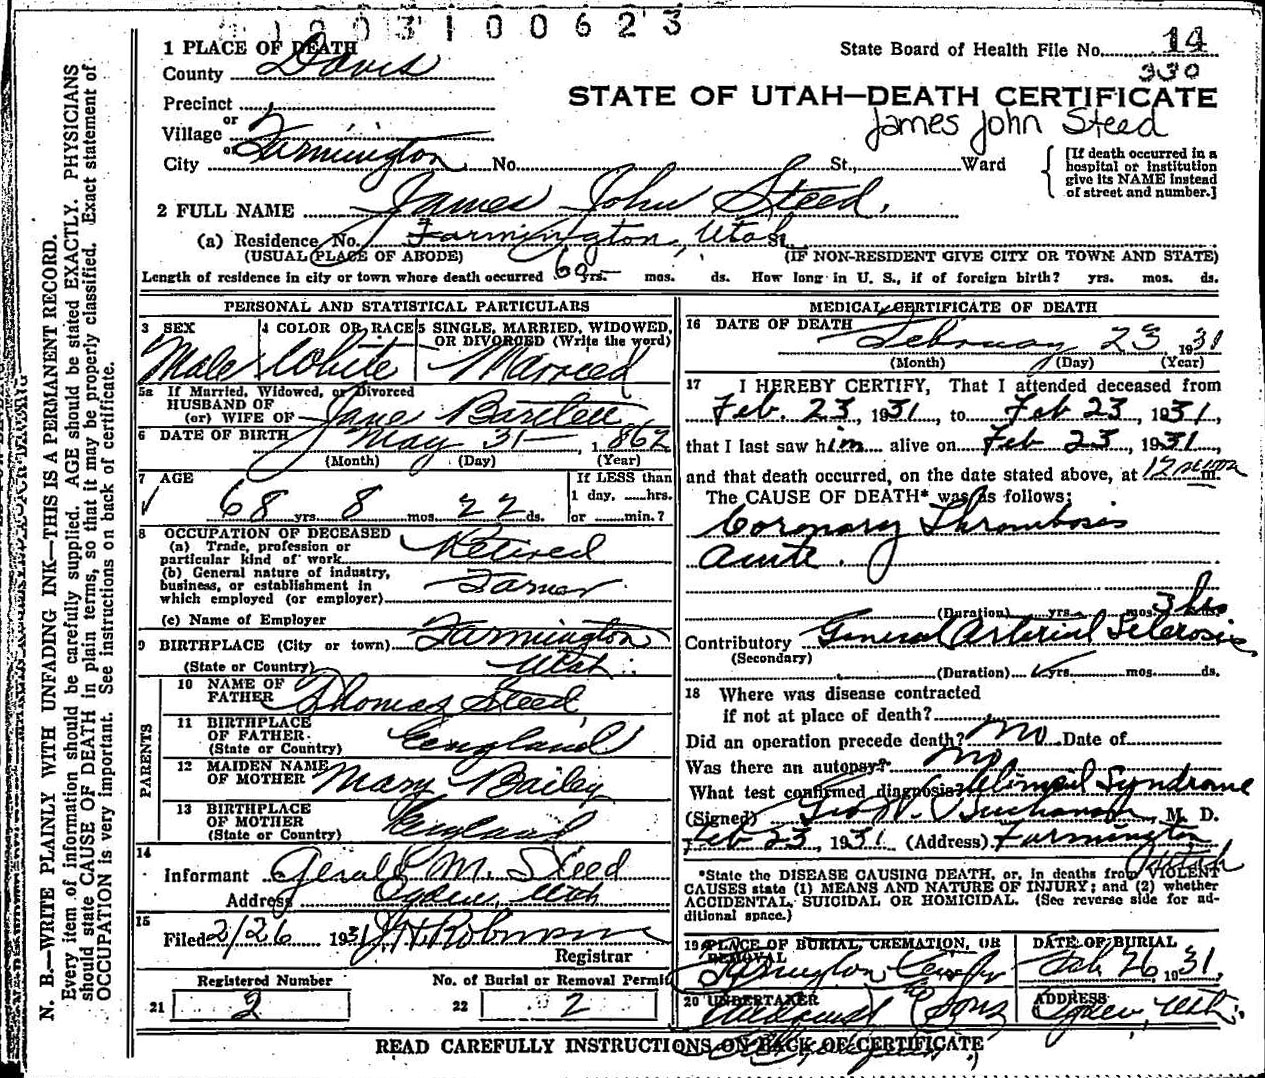 1 2 0 3 1 0 0 6 2 3
1 PLACE OF DEATH
County Davis
State Board of Health File No. 14
330
Precinct
or
Village
or
City Farmington No. St., Ward
STATE OF UTAH—DEATH CERTIFICATE
James John Steed
[If death occurred in a
hospital or institution
give its NAME instead
of street and number.]
2 FULL NAME James John Steed.
(a) Residence No. Farmington, Utah St.
(USUAL PLACE OF ABODE) (IF NON-RESIDENT GIVE CITY OR TOWN AND STATE)
Length of residence in city or town where death occurred yrs. mos. ds. How long in U. S., if of foreign birth? yrs. mos. ds.
PERSONAL AND STATISTICAL PARTICULARS
3 SEX
Male
4 COLOR OR RACE
White
5 SINGLE, MARRIED, WIDOWED,
OR DIVORCED (Write the word)
Married
5a If Married, Widowed, or Divorced
HUSBAND OF
(or) WIFE OF Jane
6 DATE OF BIRTH May 31 1862
(Month) (Day) (Year)
7 AGE
68 yrs. 8 mos. 22 ds.
If LESS than
1 day, hrs.
or min.?
8 OCCUPATION OF DECEASED
(a) Trade, profession or
particular kind of work Retired
(b) General nature of industry,
business, or establishment in
which employed (or employer) Farmer
(c) Name of Employer
9 BIRTHPLACE (City or town) Farmington
(State or Country) Utah
PARENTS
10 NAME OF
FATHER Thomas Steed
11 BIRTHPLACE
OF FATHER
(State or Country) England
12 MAIDEN NAME
OF MOTHER Mary Bailey
13 BIRTHPLACE
OF MOTHER
(State or Country) England
14
Informant Gerald M. Steed
Address Ogden, Utah
15
Filed 2/26 1931 J H Robinson
Registrar
Registered Number
21 2
No. of Burial or Removal Permit
22 2
MEDICAL CERTIFICATE OF DEATH
16 DATE OF DEATH
February 23 1931
(Month) (Day) (Year)
17 I HEREBY CERTIFY, That I attended deceased from
Feb. 23, 1931, to Feb 23, 1931,
that I last saw him alive on Feb 23, 1931,
and that death occurred, on the date stated above, at 12 noon m.
The CAUSE OF DEATH* was as follows:
Coronary Thrombosis
acute.
(Duration) yrs. mos. 3 hrs ds.
Contributory General Arterial Sclerosis
(Secondary)
(Duration) yrs. mos. ds.
18 Where was disease contracted
if not at place of death?
Did an operation precede death? No Date of
Was there an autopsy? No
What test confirmed diagnosis? Clinical Syndrome
(Signed) Geo W. Buchanan, M. D.
Feb 23, 1931 (Address) Farmington
Utah
*State the DISEASE CAUSING DEATH, or, in deaths from VIOLENT
CAUSES state (1) MEANS AND NATURE OF INJURY; and (2) whether
ACCIDENTAL, SUICIDAL OR HOMICIDAL. (See reverse side for ad-
ditional space.)
19 PLACE OF BURIAL, CREMATION, OR
REMOVAL
Farmington
DATE OF BURIAL
Feb 26, 1931,
20 UNDERTAKER
Sons
ADDRESS
Ogden, Utah.
READ CAREFULLY INSTRUCTIONS ON BACK OF CERTIFICATE
N. B.—WRITE PLAINLY WITH UNFADING INK—THIS IS A PERMANENT RECORD.
Every item of information should be carefully supplied. AGE should be stated EXACTLY. PHYSICIANS
should state CAUSE OF DEATH in plain terms, so that it may be properly classified. Exact statement of
OCCUPATION is very important. See instructions on back of certificate.